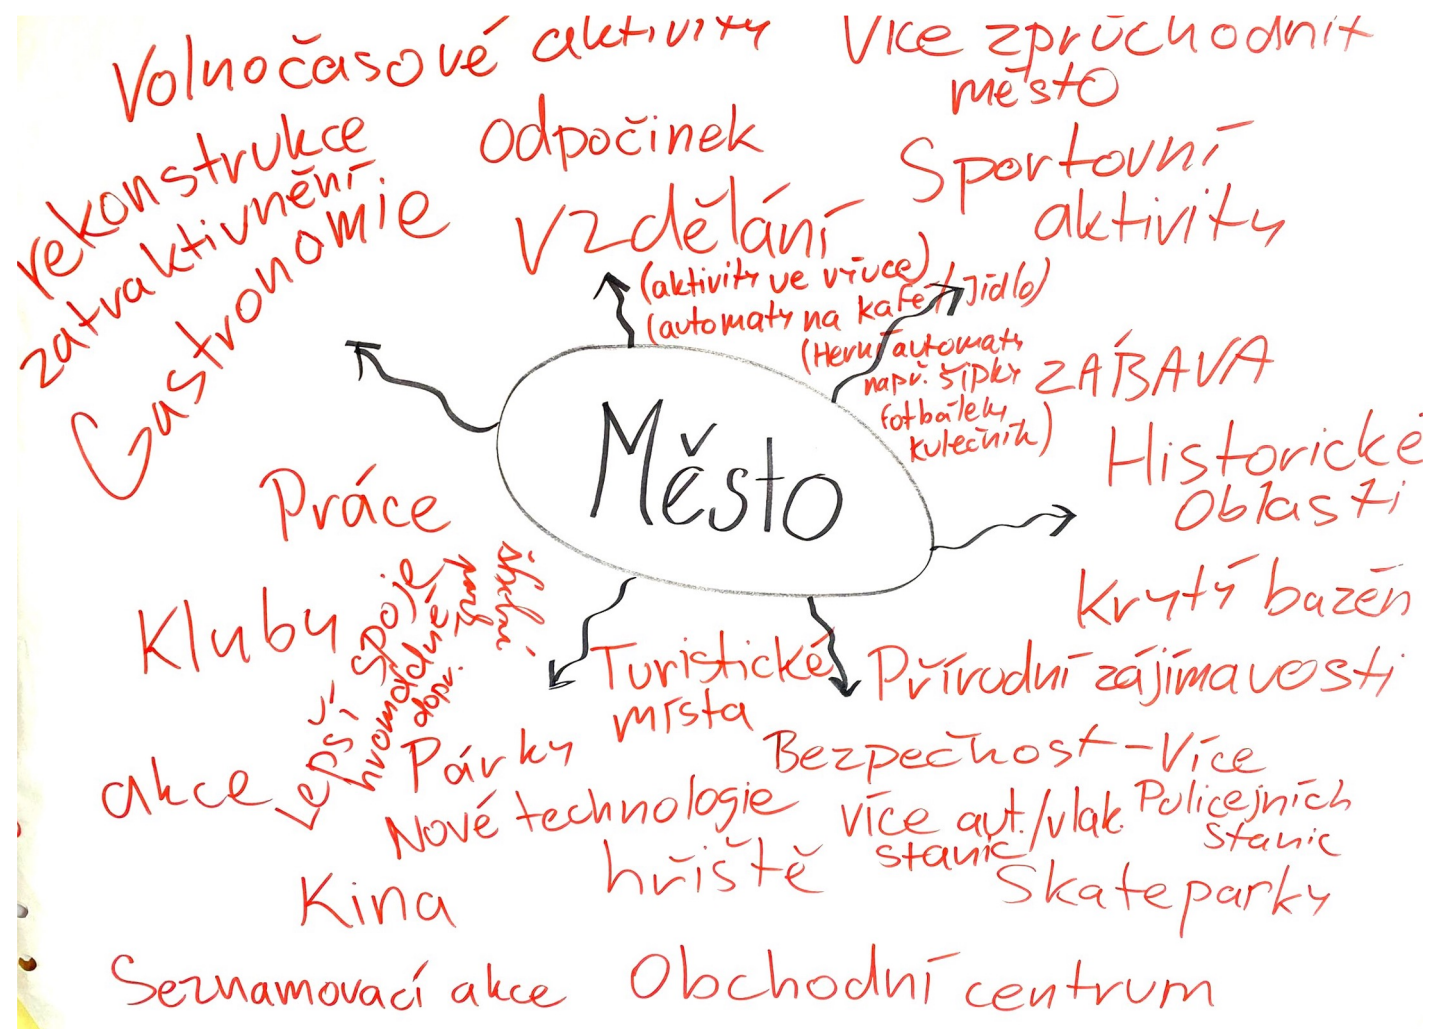 Volnočasové aktivity
Více zprůchodnit
město
Odpočinek
Sportovní
aktivity
rekonstrukce
zatraktivnění
Gastronomie
Vzdělání
(aktivity ve výuce)
(automaty na kafe / Jídlo)
(Herní automaty
např. šipky
fotbálek,
kulečník)
ZÁBAVA
Město
Historické
oblasti
Práce
Krytý bazén
Kluby
Lepší spoje
hromadné
dopr.
Turistické
místa
Přírodní zájímavosti
Párky
Bezpečnost - Více
Policejních
Stanic
akce
Nové technologie
více aut./vlak.
stanic
hřiště
Skateparky
Kina
Seznamovací akce
Obchodní centrum